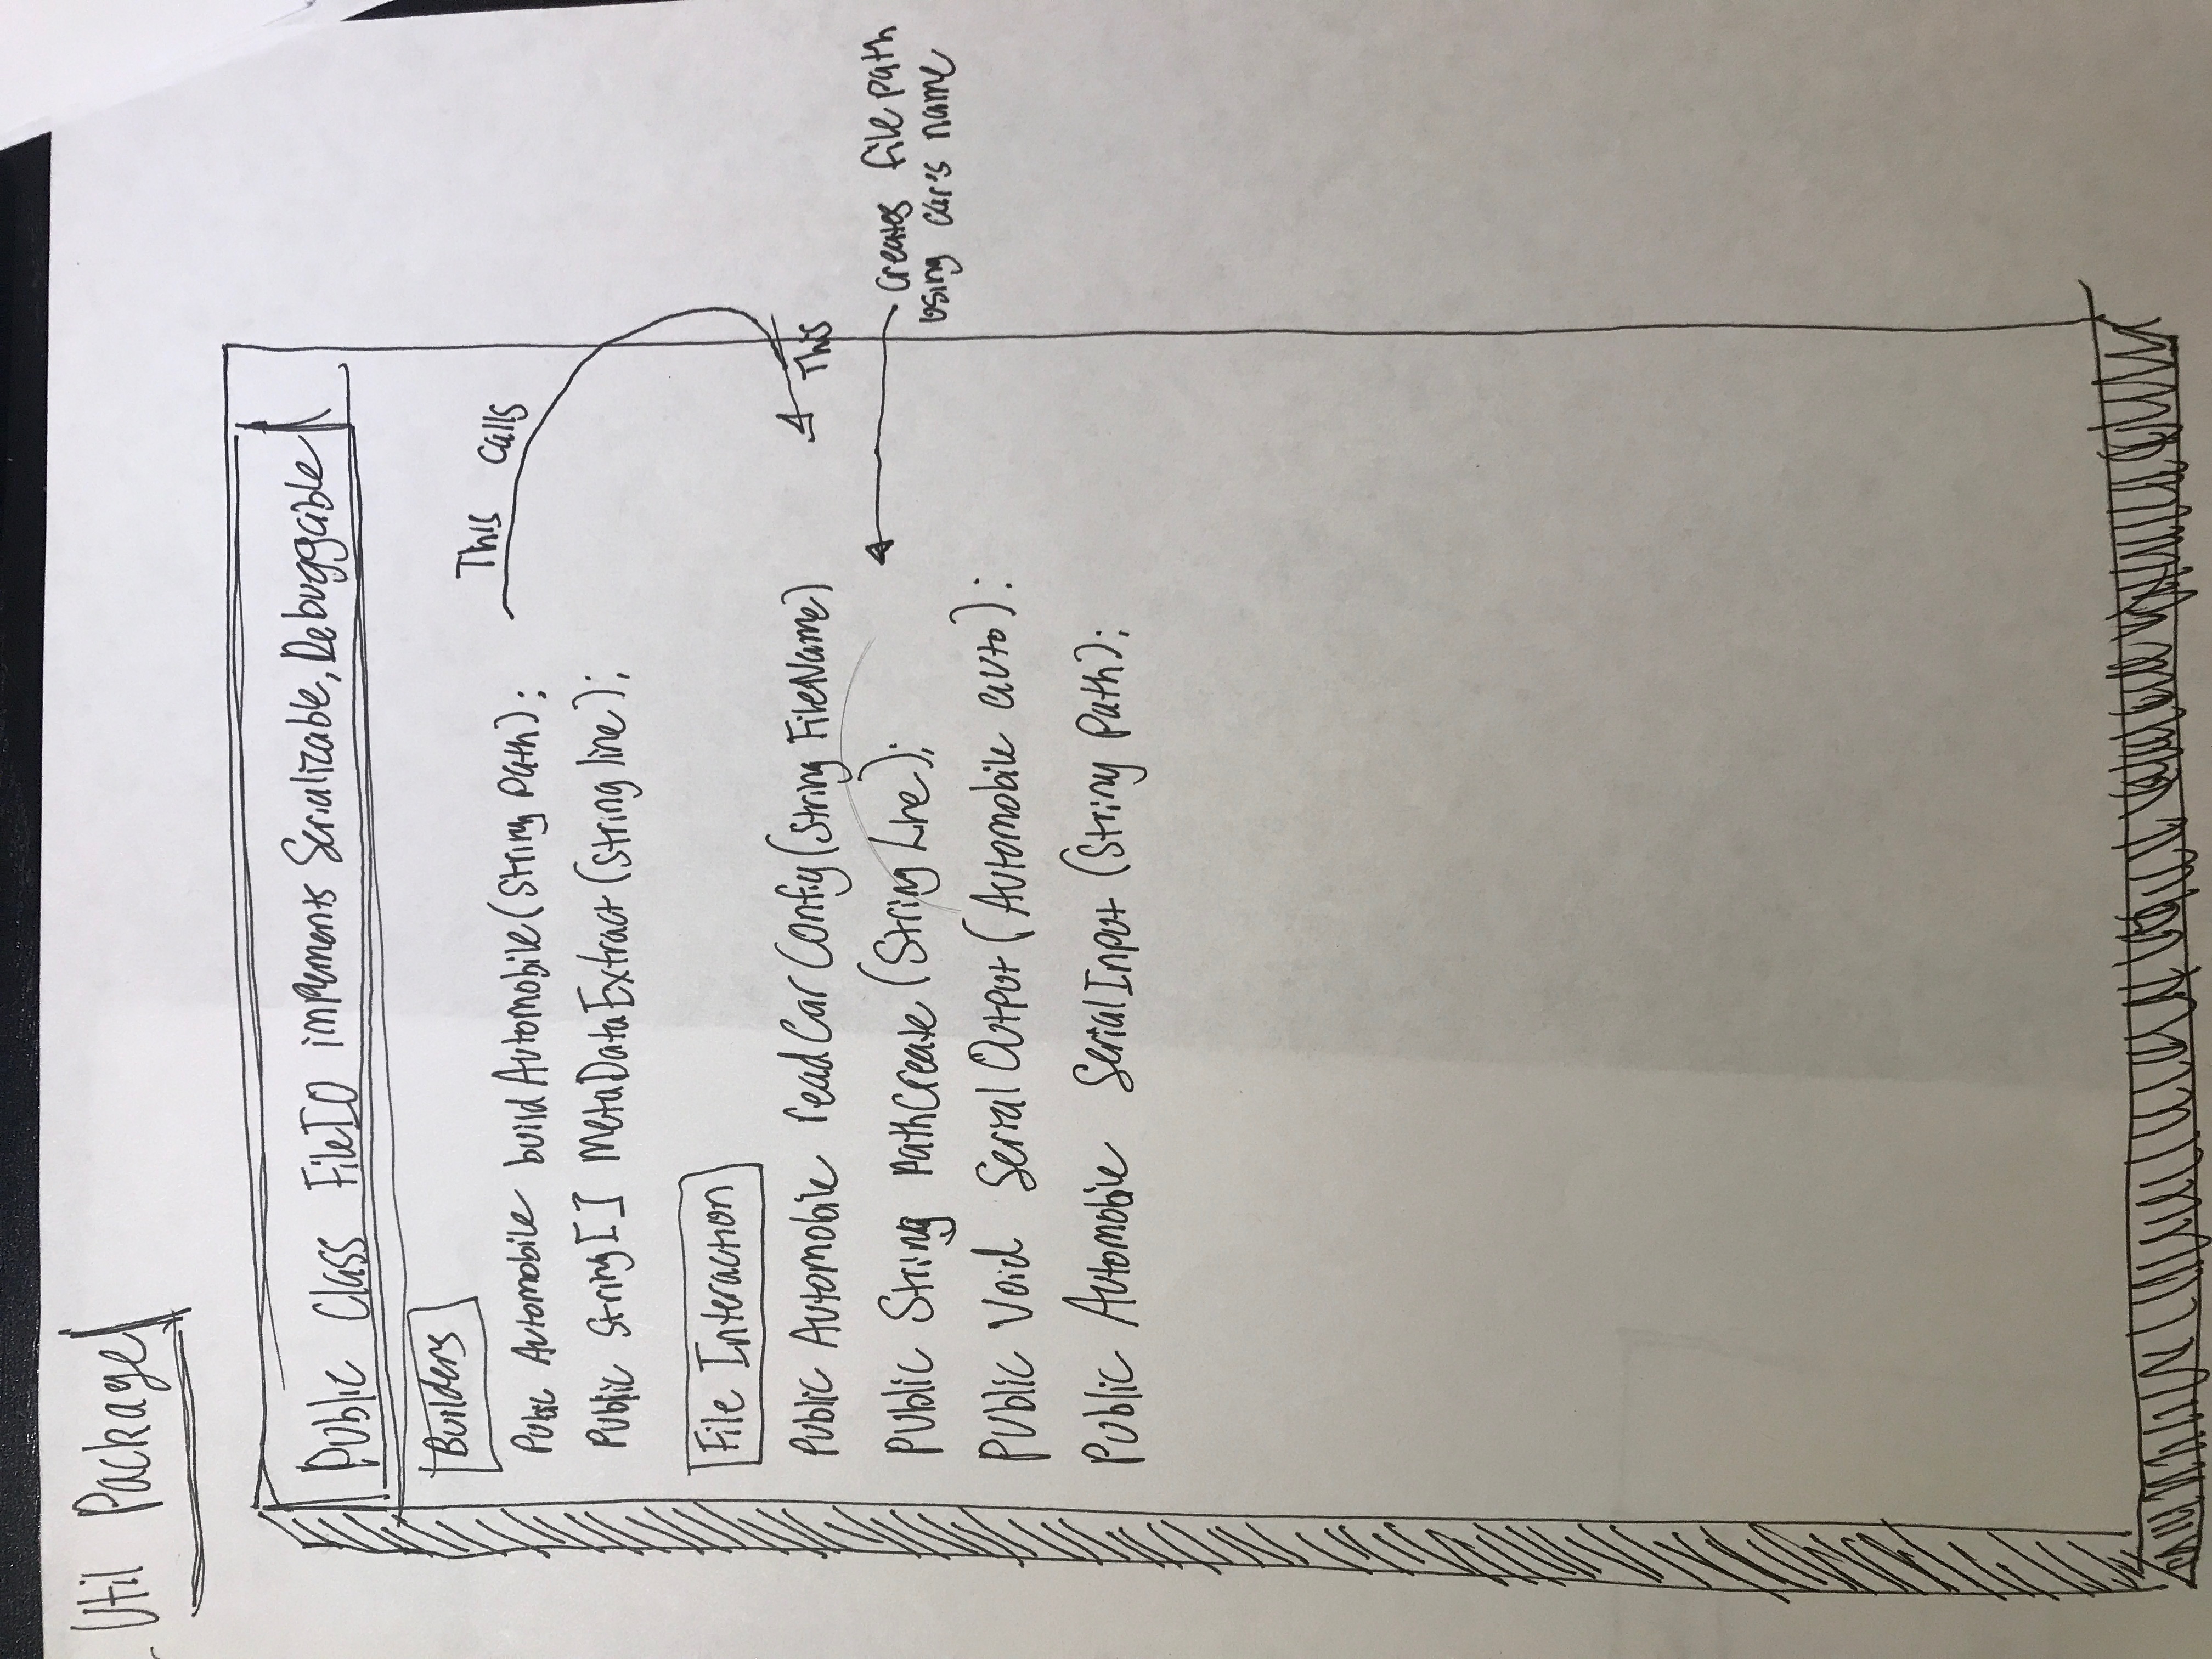 Util Package
Public Class FileIO implements Serializable, Debuggable
Builders
Public Automobile buildAutomobile(String Path);
This calls
Public String[] MetaDataExtract(String line);
File Interaction
Public Automobile readCarConfig(String FileName)
This
Public String PathCreate(String Line);
Creates file path
using car's name
Public Void SerialOutput(Automobile auto);
Public Automobile SerialInput(String Path);